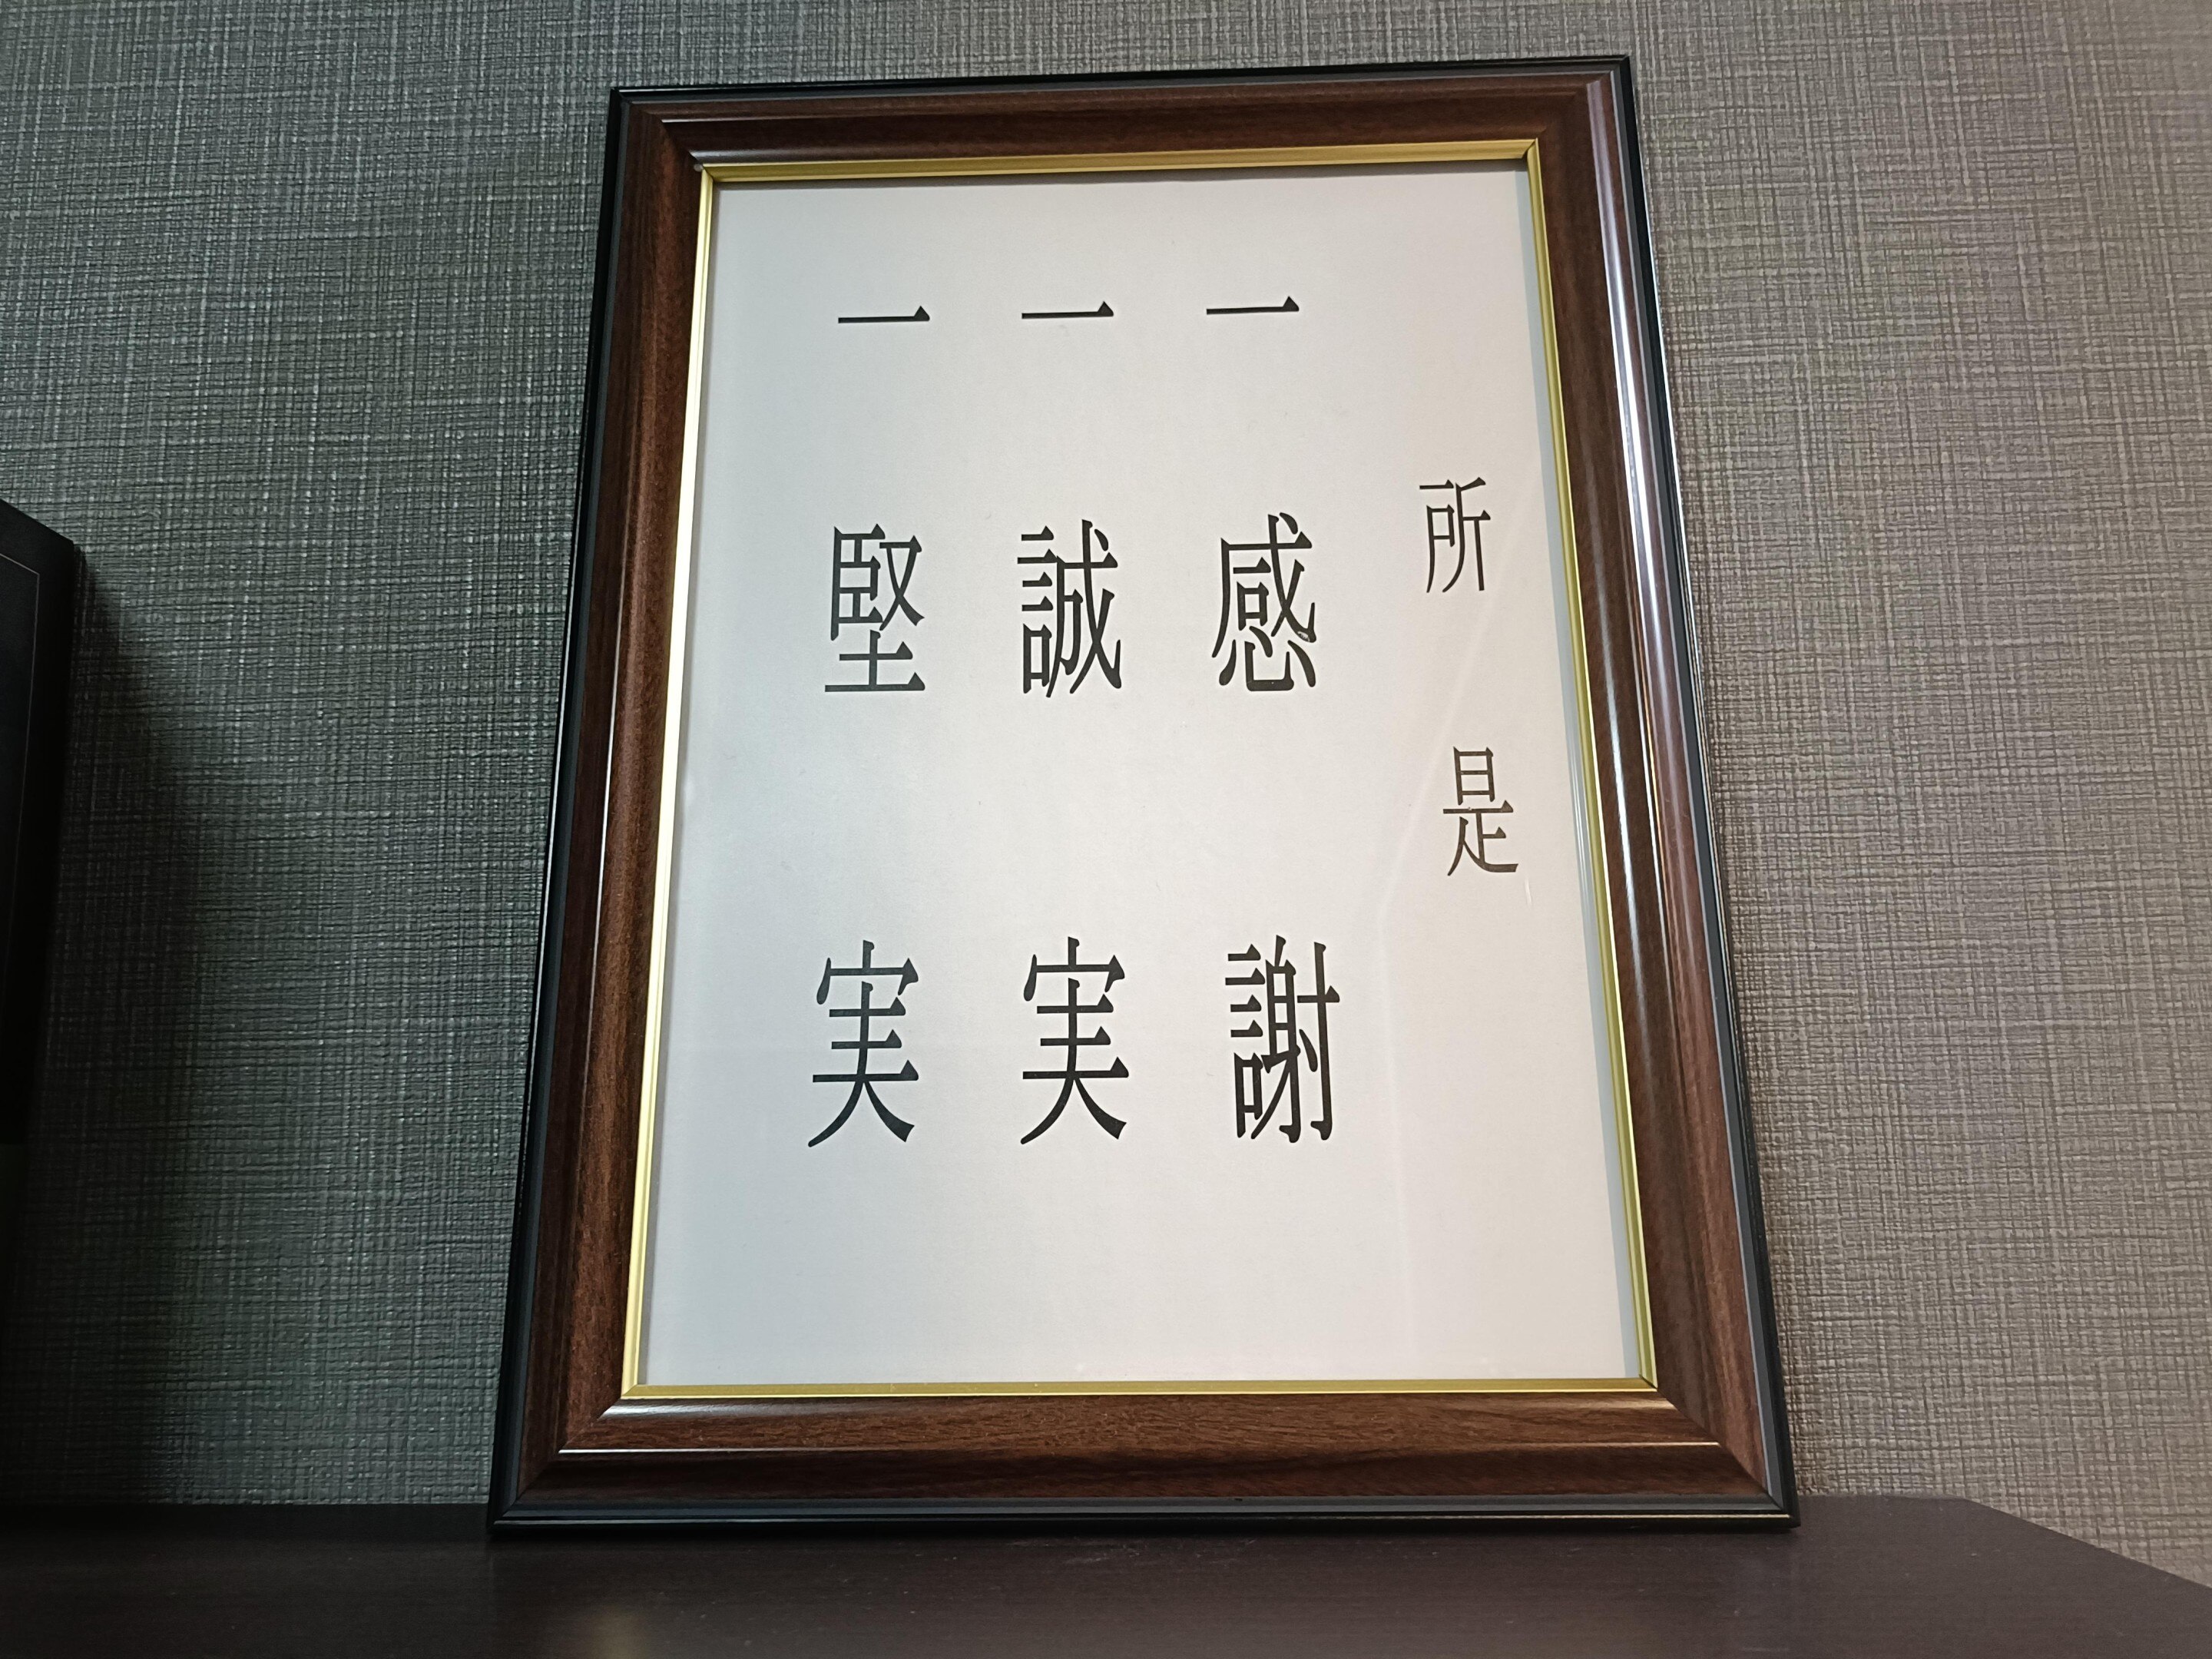 所是
一 感謝
一 誠実
一 堅実